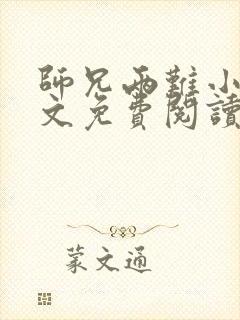 師兄兩難小
文免費閱讀
蒙文通